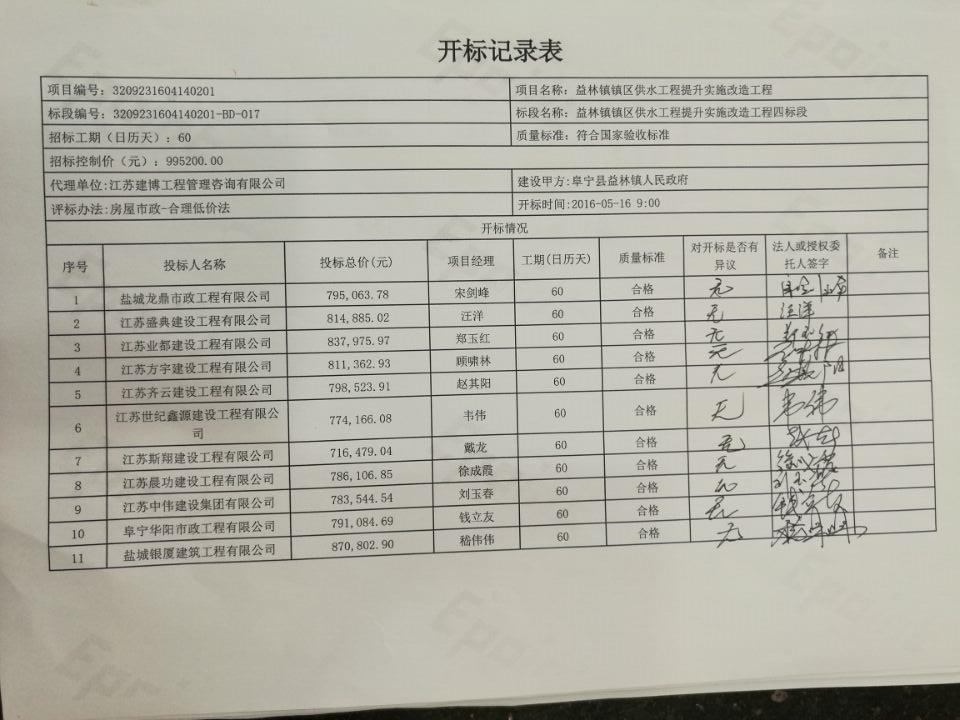 开标记录表
项目编号: 3209231604140201 项目名称: 益林镇镇区供水工程提升实施改造工程
标段编号: 3209231604140201-BD-017 标段名称: 益林镇镇区供水工程提升实施改造工程四标段
招标工期（日历天）: 60 质量标准: 符合国家验收标准
招标控制价（元）: 995200.00
代理单位:江苏建博工程管理咨询有限公司 建设甲方:阜宁县益林镇人民政府
评标办法:房屋市政-合理低价法 开标时间:2016-05-16 9:00
开标情况
序号 投标人名称 投标总价(元) 项目经理 工期(日历天) 质量标准 对开标是否有 法人或授权委 备注
异议 托人签字
1 盐城龙鼎市政工程有限公司 795,063.78 宋剑峰 60 合格 无
2 江苏盛典建设工程有限公司 814,885.02 汪洋 60 合格 无 汪洋
3 江苏业都建设工程有限公司 837,975.97 郑玉红 60 合格 无
4 江苏方宇建设工程有限公司 811,362.93 顾啸林 60 合格 无
5 江苏齐云建设工程有限公司 798,523.91 赵其阳 60 合格 无
6 江苏世纪鑫源建设工程有限公 774,166.08 韦伟 60 合格 无 韦伟
司
7 江苏斯翔建设工程有限公司 716,479.04 戴龙 60 合格 无
8 江苏晨功建设工程有限公司 786,106.85 徐成霞 60 合格 无
9 江苏中伟建设集团有限公司 783,544.54 刘玉春 60 合格
10 阜宁华阳市政工程有限公司 791,084.69 钱立友 60 合格 无
11 盐城银厦建筑工程有限公司 870,802.90 嵇伟伟 60 合格 无